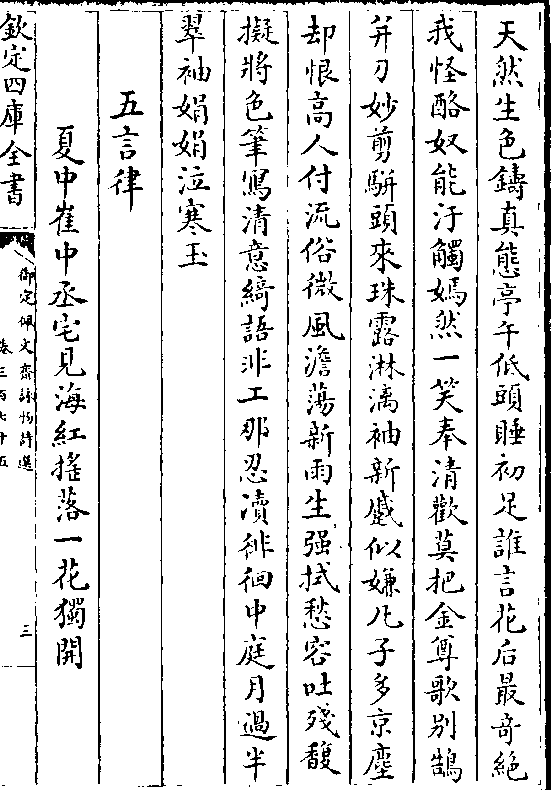 天然生色鑄真態亭午低頭睡初足誰言花后最奇絶
我怪酪奴能汙觸嫣然一笑奉清歡莫把金尊歌别鵠
并刀妙剪駢頭來珠露淋漓袖新蹙似嫌凡子多京塵
却恨高人付流俗微風澹蕩新雨生强拭愁容吐殘馥
擬將色筆寫清意綺語非工那忍凟徘徊中庭月過半
翠袖娟娟泣寒玉
五言律
夏中崔中丞宅見海紅搖落一花獨開
欽定四庫全書
御定佩文齋詠物詩選
卷三百七十五
三